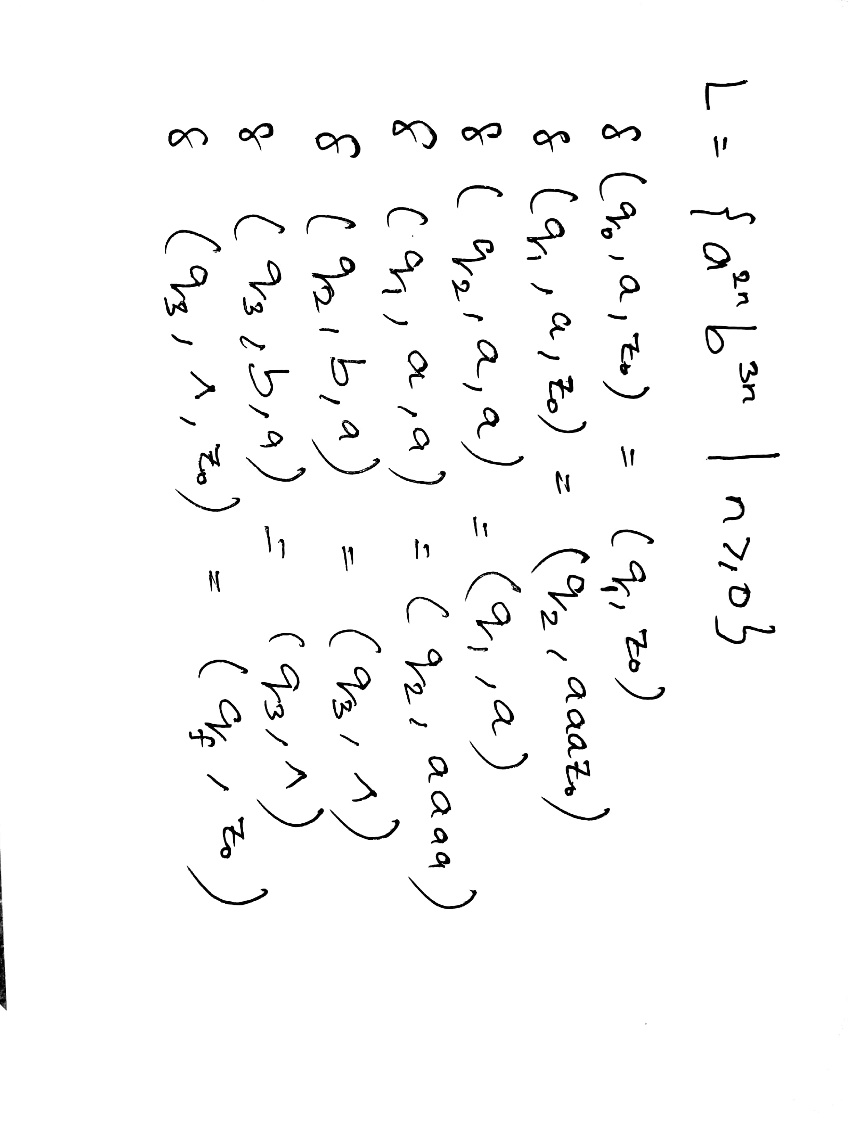 L = { a²ⁿ b³ⁿ | n ≥ 0 }
δ (q₀, a, z₀) = (q₁, z₀)
δ (q₁, a, z₀) = (q₂, aaaz₀)
δ (q₂, a, a) = (q₁, a)
δ (q₁, a, a) = (q₂, aaaa)
δ (q₂, b, a) = (q₃, ^)
δ (q₃, b, a) = (q₃, ^)
δ (q₃, ^, z₀) = (q_f, z₀)